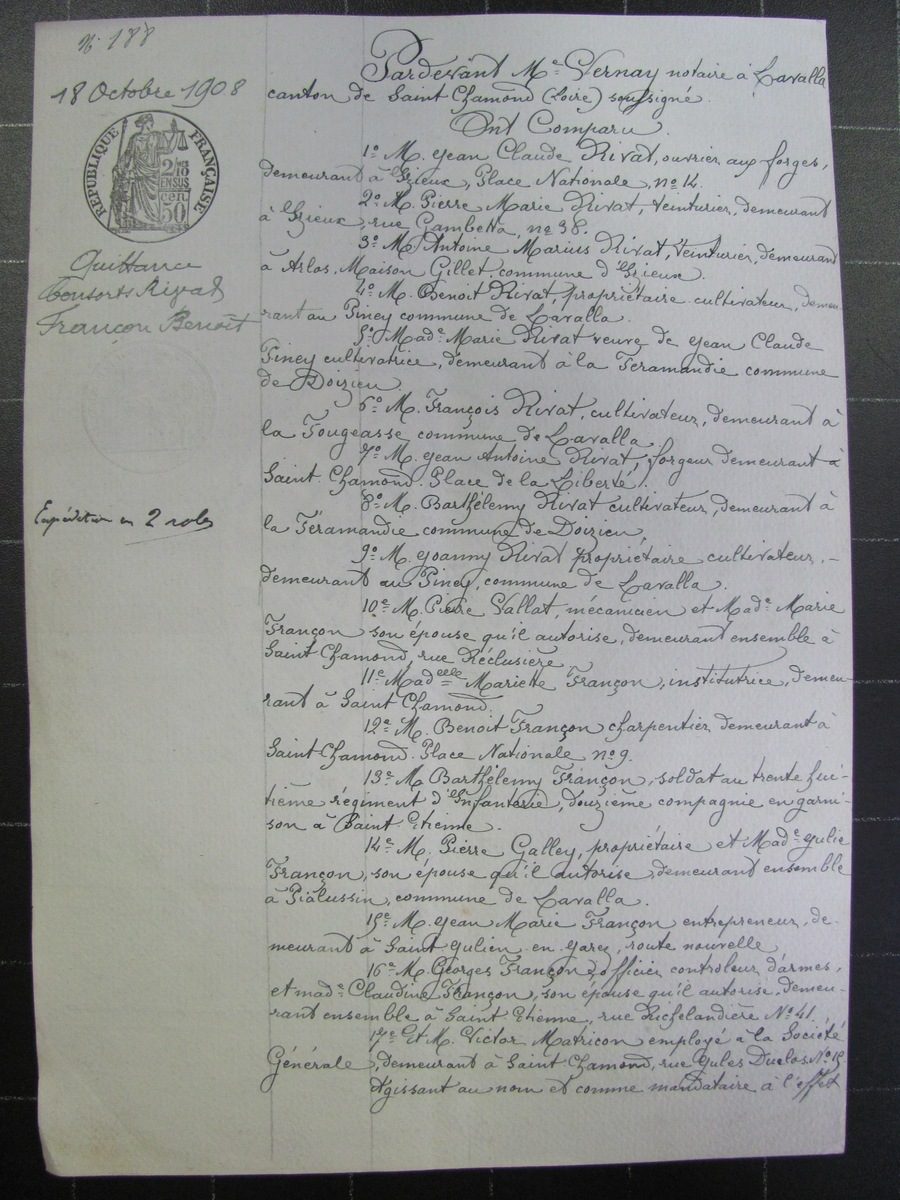 N° 188
18 Octobre 1908
RÉPUBLIQUE FRANÇAISE
2/10
EN SUS
50 cen
Quittance
Consorts Rivat
Françon Benoît
Expédition en 2 roles
Pardevant Me Vernay notaire à Lavalla
canton de Saint Chamond (Loire) soussigné.
Ont Comparu.
1° M. Jean Claude Rivat, ouvrier aux forges,
demeurant à Izieux, Place Nationale, n° 14.
2° M. Pierre Marie Rivat, teinturier, demeurant
à Izieux, rue Gambetta, n° 38.
3° M. Antoine Marius Rivat, teinturier, demeurant
à Arlos, Maison Gillet, commune d'Izieux.
4° M. Benoit Rivat, propriétaire cultivateur, demeu-
rant au Piney commune de Lavalla.
5° Made Marie Rivat veuve de Jean Claude
Piney cultivatrice, demeurant à la Féramandie commune
de Doizieu.
6° M. François Rivat, cultivateur, demeurant à
la Fougeasse commune de Lavalla.
7° M. Jean Antoine Rivat, forgeur demeurant à
Saint Chamond. Place de la Liberté.
8° M. Barthélemy Rivat cultivateur, demeurant à
la Féramandie commune de Doizieu,
9° M. Joanny Rivat propriétaire cultivateur, -
demeurant au Piney, commune de Lavalla.
10e M. Pierre Vallat, mécanicien et Made Marie
Françon son épouse qu'il autorise, demeurant ensemble à
Saint Chamond, rue Réclusière,
11e Madelle Mariette Françon, institutrice, demeu-
rant à Saint Chamond.
12e M. Benoit Françon charpentier, demeurant à
Saint Chamond. Place Nationale n° 9.
13e M. Barthélemy Françon, soldat au trente hui-
tième régiment d'Infanterie, douzième compagnie en garni-
son à Saint-Etienne.
14e M. Pierre Galley, propriétaire et Made Julie
Françon, son épouse qu'il autorise, demeurant ensemble
à Pialussin, commune de Lavalla.
15e M. Jean Marie Françon entrepreneur, de-
meurant à Saint Julien en Jarez, route nouvelle
16e M. Georges Françon, officier controleur d'armes,
et made Claudine Françon, son épouse qu'il autorise, demeu-
rant ensemble à Saint Etienne, rue Richelandière N° 41.
17e Et M. Victor Matricon employé à la Société
Générale, demeurant à Saint Chamond, rue Jules Duclos, N° 15.
Agissant au nom et comme mandataire à l'effet